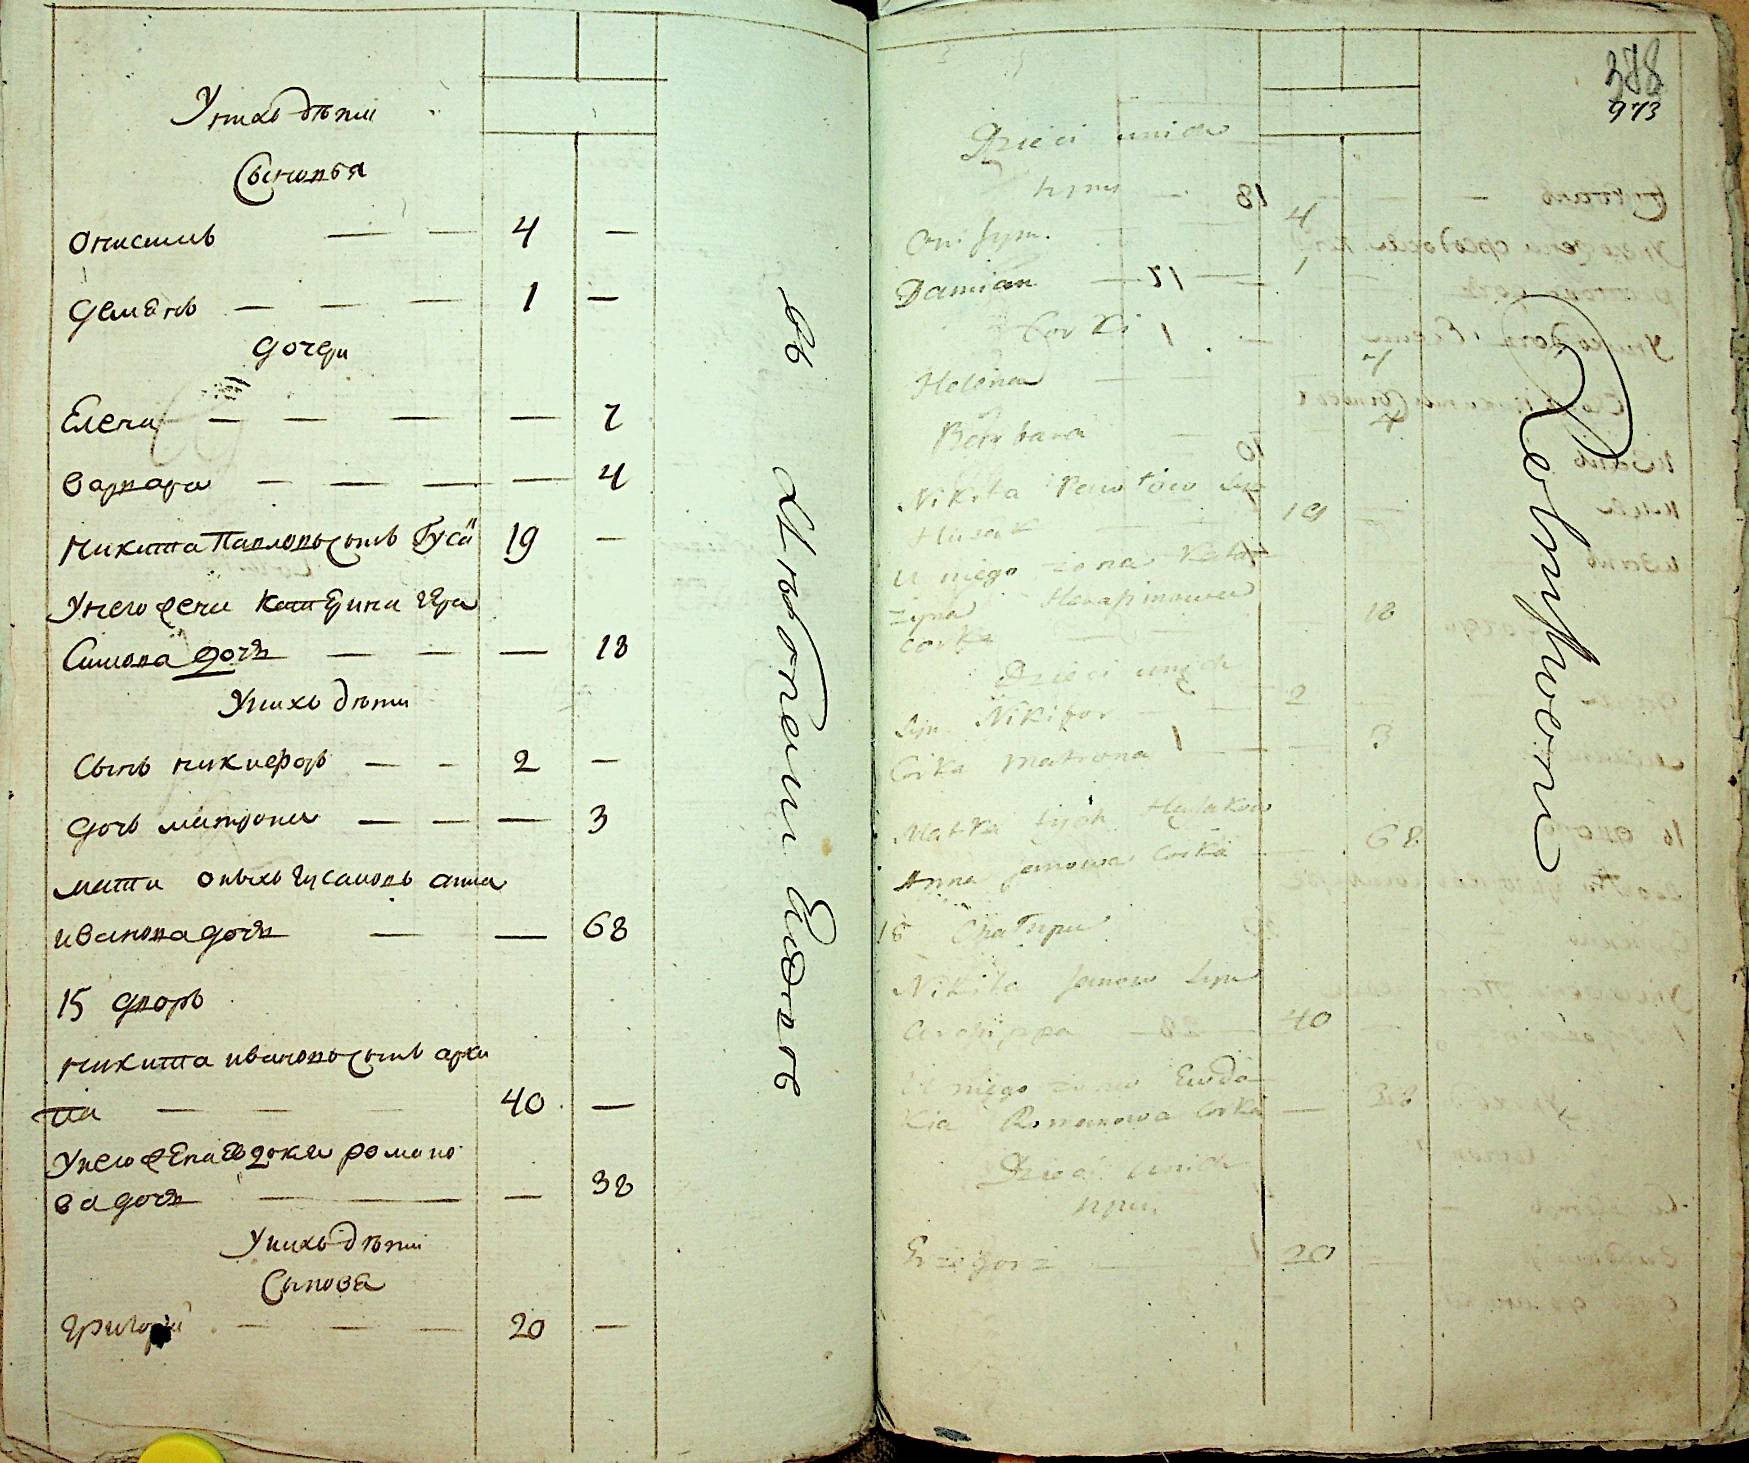 У нихъ дѣти
Сыновья
Онисимъ — — 4 —
Демѣнъ — — — 1 —
Дочери
Елена — — — — 7
Варвара — — — — 4
Никита Павловъ сынъ Гусакъ 19 —
У него жена Катерина Гера
симова дочь — — — 18
У нихъ дѣти
Сынъ Никифоръ — — 2 —
Дочь Матрона — — — 3
Мати оныхъ Гусаковъ Анна
Иванова дочь — — 68
15 дворъ
Никита Ивановъ сынъ Архи
па — — — 40 —
У него жена Евдокия Романо
ва дочь — — — 38
У нихъ дѣти
Сынова
Григорій — — — 20 —
въ
388
973
Dzieci u nich
synы
Onisym. — 4
Damian — 1
Corki
Helena — 7
Barbara — 4
Nikita Pawłow syn
Husak — 19
U niego żona Kata
zyna Harasimowa
corka — 18
Dzieci u nich
Syn Nikifor — 2
Corka Matrona — 3
Matka tych Husakow
Anna Janowa Corka — 68
15 Chata
Nikita Janow syn
Archippa — 40
U niego żona Ewdo
kia Romanowa Corka — 38
Dzieci u nich
syny
Grzegorz — 20